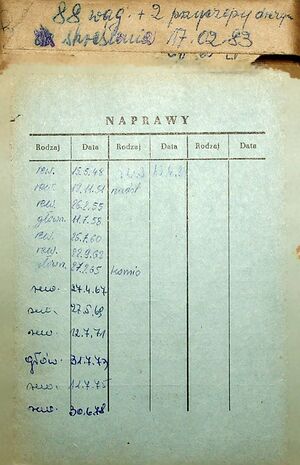 88 wag. + 2 przyczepy
skreślenia 17.02.83
NAPRAWY
Rodzaj Data Rodzaj Data Rodzaj Data
rew. 15.5.48
rew. 19.11.51
rew. 26.2.55
główn. 11.7.58
rew. 25.7.60
rew. 22.9.62
główn. 27.2.65
rew. 27.4.67
rew. 27.5.69
rew. 12.7.71
głów. 31.7.73
rew. 12.7.75
rew. 30.6.78